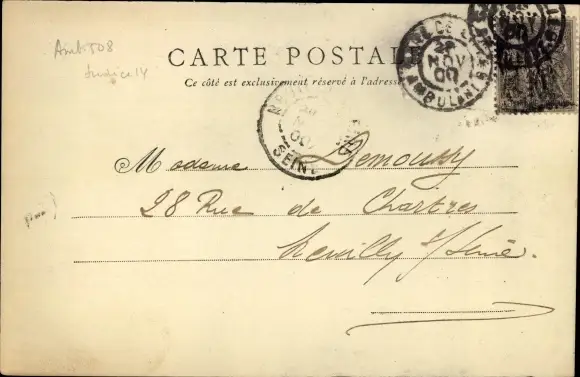 Amb 508
Indice 14
CARTE POSTALE
Ce côté est exclusivement réservé à l'adresse
28 NOV 00
AMBULANTS
SEINE
Madame Lemoussy
28 Rue de Chartres
Neuilly s/Seine.